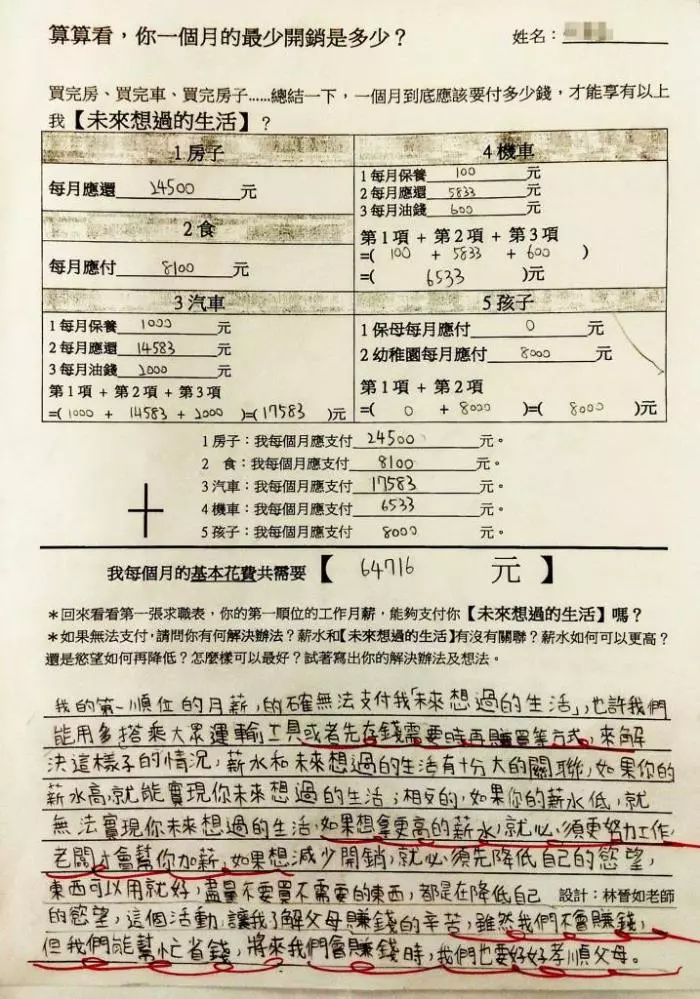 算算看，你一個月的最少開銷是多少？
姓名：
買完房、買完車、買完房子……總結一下，一個月到底應該要付多少錢，才能享有以上
我【未來想過的生活】？
1 房子
每月應還 24500 元
2 食
每月應付 8100 元
3 汽車
1 每月保養 1000 元
2 每月應還 14583 元
3 每月油錢 2000 元
第 1 項 + 第 2 項 + 第 3 項
=( 1000 + 14583 + 2000 )=( 17583 )元
4 機車
1 每月保養 100 元
2 每月應還 5833 元
3 每月油錢 600 元
第 1 項 + 第 2 項 + 第 3 項
=( 100 + 5833 + 600 )
=( 6533 )元
5 孩子
1 保母每月應付 0 元
2 幼稚園每月應付 8000 元
第 1 項 + 第 2 項
=( 0 + 8000 )=( 8000 )元
1 房子：我每個月應支付 24500 元。
2 食：我每個月應支付 8100 元。
3 汽車：我每個月應支付 17583 元。
4 機車：我每個月應支付 6533 元。
5 孩子：我每個月應支付 8000 元。
+
我每個月的基本花費共需要【 64716 元 】
＊回來看看第一張求職表，你的第一順位的工作月薪，能夠支付你【未來想過的生活】嗎？
＊如果無法支付，請問你有何解決辦法？薪水和【未來想過的生活】有沒有關聯？薪水如何可以更高？
還是慾望如何再降低？怎麼樣可以最好？試著寫出你的解決辦法及想法。
我的第一順位的月薪，的確無法支付我「未來想過的生活」，也許我們
能用多搭乘大眾運輸工具或者先存錢需要時再購買等方式，來解
決這樣子的情況，薪水和未來想過的生活有十分大的關聯，如果你的
薪水高，就能實現你未來想過的生活；相反的，如果你的薪水低，就
無法實現你未來想過的生活，如果想拿更高的薪水，就必須更努力工作，
老闆才會幫你加薪，如果想減少開銷，就必須先降低自己的慾望，
東西可以用就好，盡量不要買不需要的東西，都是在降低自己 設計：林晉如老師
的慾望，這個活動讓我了解父母賺錢的辛苦，雖然我們不會賺錢，
但我們能幫忙省錢，將來我們會賺錢時，我們也要好好孝順父母。